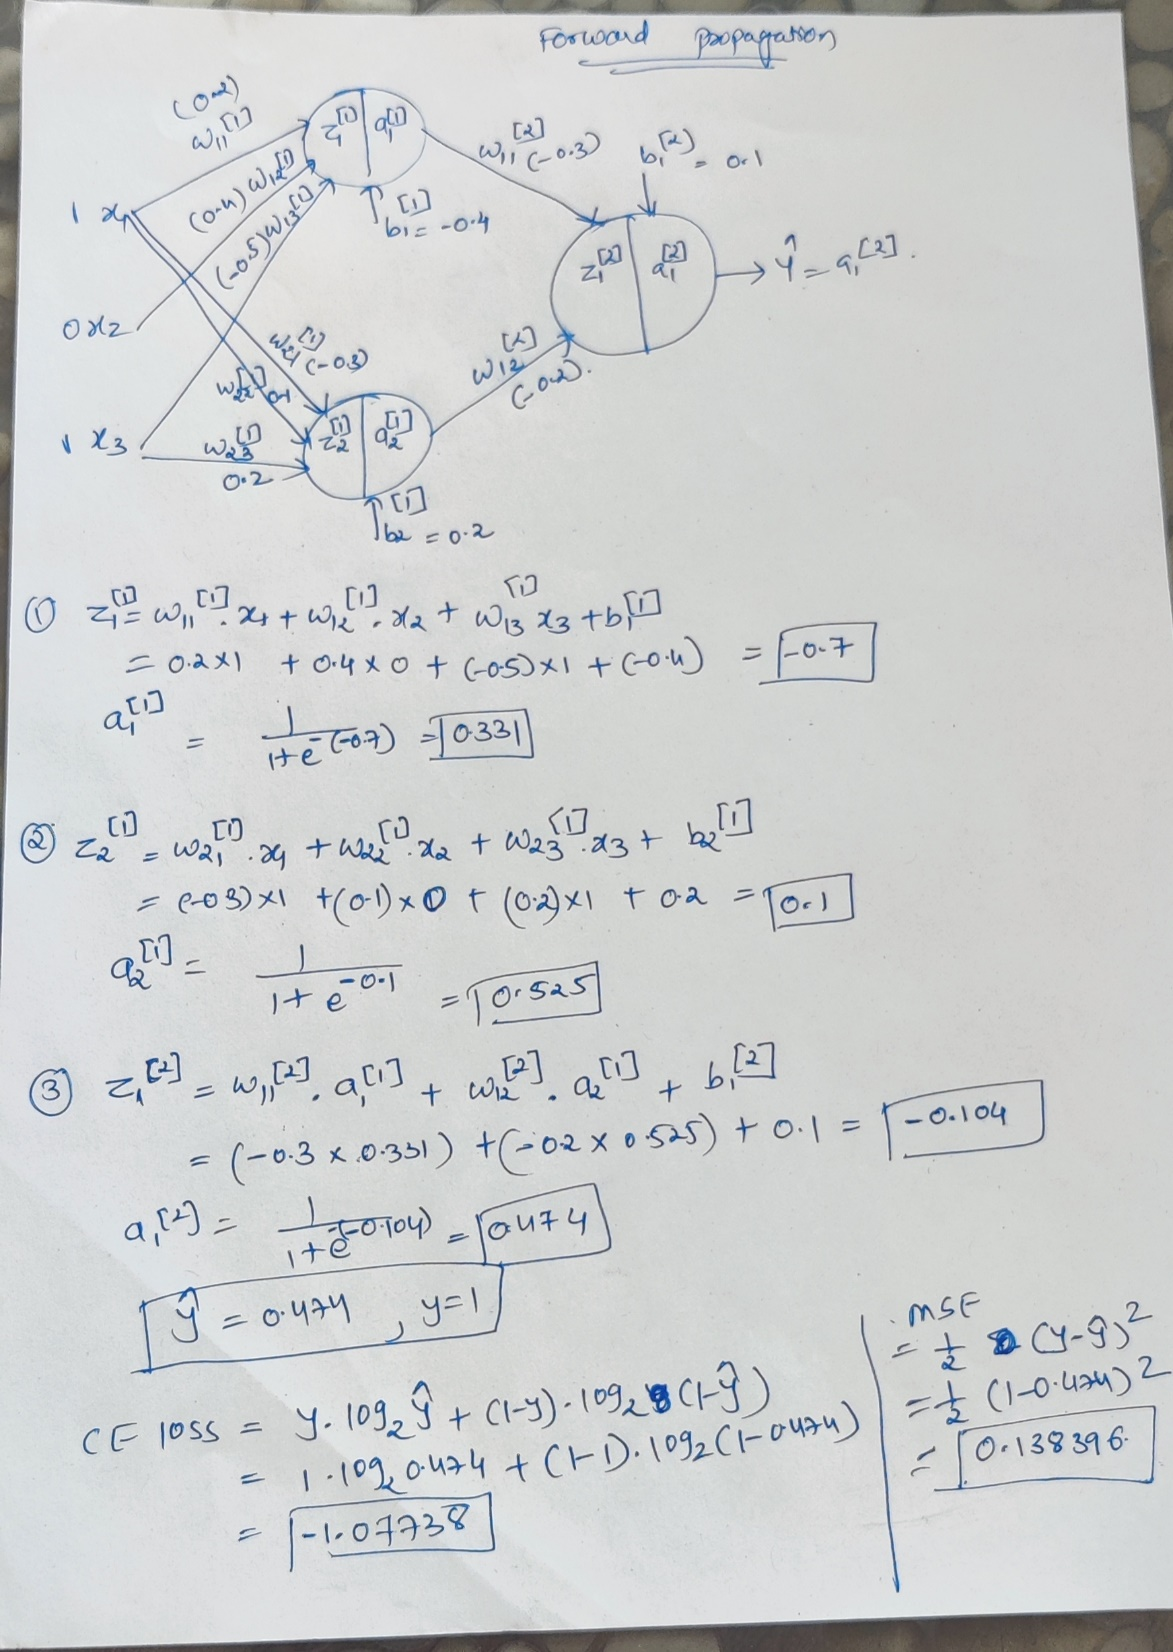 Forward propagation
(0.2)
w11[1]
z1[1] a1[1]
(0.4) w12[1]
(-0.5) w13[1]
b1[1] = -0.4
w11[2] (-0.3)
b1[2] = 0.1
1 x1
0 x2
1 x3
z1[2] a1[2]
ŷ = a1[2].
w21[1] (-0.3)
w22[1] 0.1
w23[1]
0.2
z2[1] a2[1]
b2[1] = 0.2
w12[2]
(-0.2).
① z1[1] = w11[1] . x1 + w12[1] . x2 + w13[1] x3 + b1[1]
= 0.2×1 + 0.4×0 + (-0.5)×1 + (-0.4) = -0.7
a1[1] = 1/(1+e^-(-0.7)) = 0.331
② z2[1] = w21[1] . x1 + w22[1] . x2 + w23[1] . x3 + b2[1]
= (-0.3)×1 + (0.1)×0 + (0.2)×1 + 0.2 = 0.1
a2[1] = 1/(1+e^-0.1) = 0.525
③ z1[2] = w11[2] . a1[1] + w12[2] . a2[1] + b1[2]
= (-0.3 × 0.331) + (-0.2 × 0.525) + 0.1 = -0.104
a1[2] = 1/(1+e^-(-0.104)) = 0.474
ŷ = 0.474 , y=1
CE loss = y. log2 ŷ + (1-y). log2 (1-ŷ)
= 1. log2 0.474 + (1-1). log2 (1-0.474)
= -1.07738
MSE
= 1/2 (y-ŷ)²
= 1/2 (1-0.474)²
= 0.138396